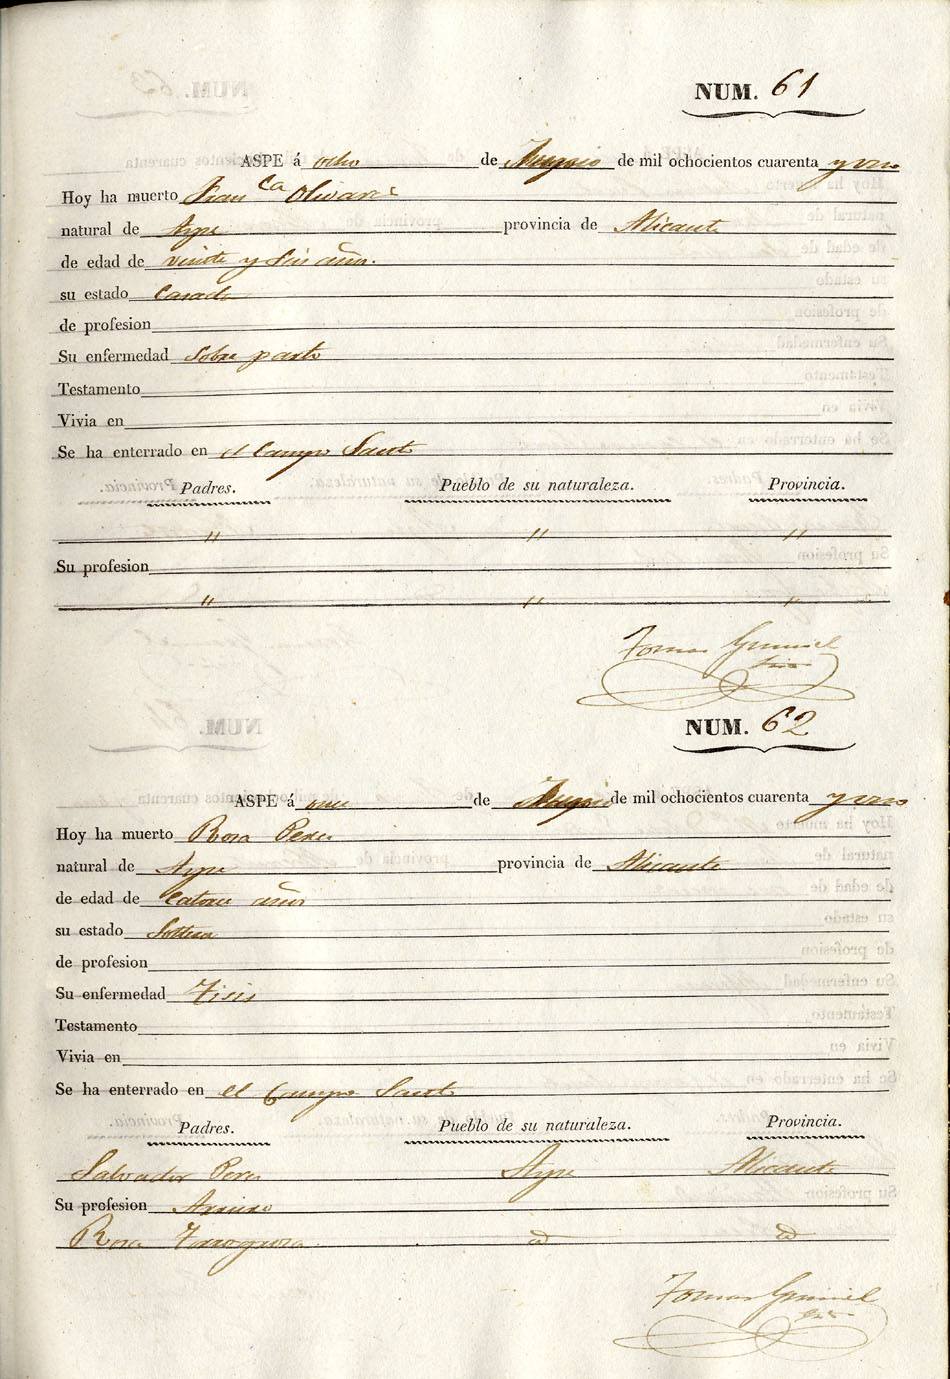 NUM. 61
ASPE á ocho de de mil ocochientos cuarenta y uno
Hoy ha muerto Franca Olivares
natural de Aspe provincia de Alicante
de edad de veinte y seis años.
su estado Casada
de profesion
Su enfermedad Sobre parto
Testamento
Vivia en
Se ha enterrado en el Campo Santo
Padres. Pueblo de su naturaleza. Provincia.
" " "
Su profesion
" " "
Tomas
NUM. 62
ASPE á once de de mil ochocientos cuarenta y uno
Hoy ha muerto Rosa Perez
natural de Aspe provincia de Alicante
de edad de Catorce años
su estado Soltera
de profesion
Su enfermedad Tisis
Testamento
Vivia en
Se ha enterrado en el Campo Santo
Padres. Pueblo de su naturaleza. Provincia.
Salvador Perez Aspe Alicante
Su profesion Arriero
Rosa Torregrosa id id
Tomas